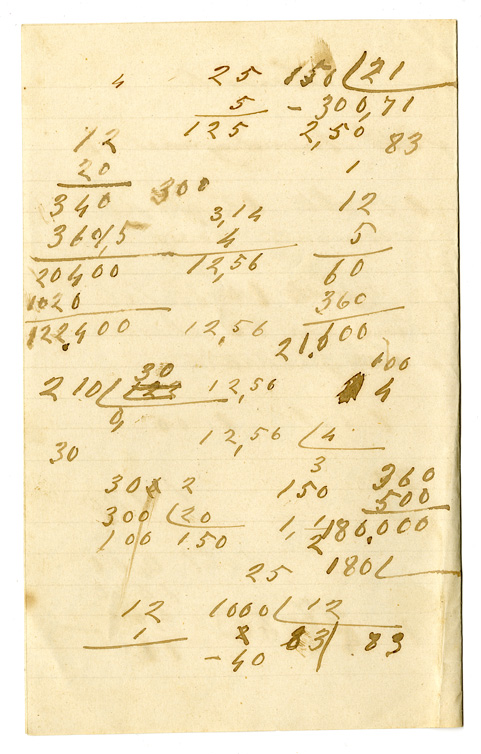 4 25 150 21
5 - 300,71
125 2,50 83
12
20 1
340 300 12
360,5 3,14 5
4
20400 12,56 60
1020 360
122.400 12,56 21,600
30 100
210 12,56 4
9
12,56 4
30 3
30 x 2 150 360
300 20 500
100 150 1,1 180.000
2
25 180
12 1000 12
1 8 83 83
- 40